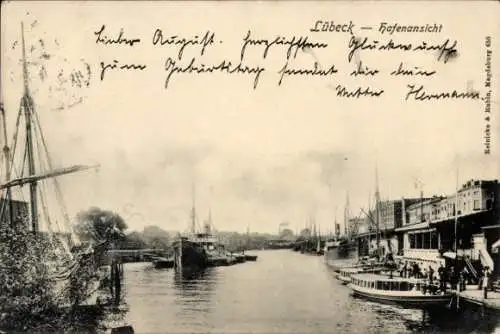 Lübeck — Hafenansicht
Lieber August, herzlichsten Glückwunsch
zum Geburtstage sendet dir dein
Vetter Hermann.
Reinicke & Rubin, Magdeburg 456